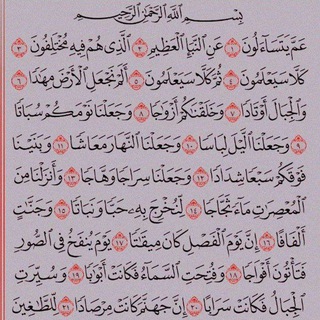 بِسْمِ اللَّهِ الرَّحْمَٰنِ الرَّحِيمِ
عَمَّ يَتَسَاءَلُونَ ١ عَنِ النَّبَإِ الْعَظِيمِ ٢ الَّذِي هُمْ فِيهِ مُخْتَلِفُونَ ٣
كَلَّا سَيَعْلَمُونَ ٤ ثُمَّ كَلَّا سَيَعْلَمُونَ ٥ أَلَمْ نَجْعَلِ الْأَرْضَ مِهَٰدًا ٦
وَالْجِبَالَ أَوْتَادًا ٧ وَخَلَقْنَٰكُمْ أَزْوَٰجًا ٨ وَجَعَلْنَا نَوْمَكُمْ سُبَاتًا
٩ وَجَعَلْنَا الَّيْلَ لِبَاسًا ١٠ وَجَعَلْنَا النَّهَارَ مَعَاشًا ١١ وَبَنَيْنَا
فَوْقَكُمْ سَبْعًا شِدَادًا ١٢ وَجَعَلْنَا سِرَاجًا وَهَّاجًا ١٣ وَأَنزَلْنَا مِنَ
الْمُعْصِرَٰتِ مَاءً ثَجَّاجًا ١٤ لِّنُخْرِجَ بِهِ حَبًّا وَنَبَاتًا ١٥ وَجَنَّٰتٍ
أَلْفَافًا ١٦ إِنَّ يَوْمَ الْفَصْلِ كَانَ مِيقَٰتًا ١٧ يَوْمَ يُنفَخُ فِي الصُّورِ
فَتَأْتُونَ أَفْوَاجًا ١٨ وَفُتِحَتِ السَّمَاءُ فَكَانَتْ أَبْوَٰبًا ١٩ وَسُيِّرَتِ
الْجِبَالُ فَكَانَتْ سَرَابًا ٢٠ إِنَّ جَهَنَّمَ كَانَتْ مِرْصَادًا ٢١ لِّلطَّٰغِينَ